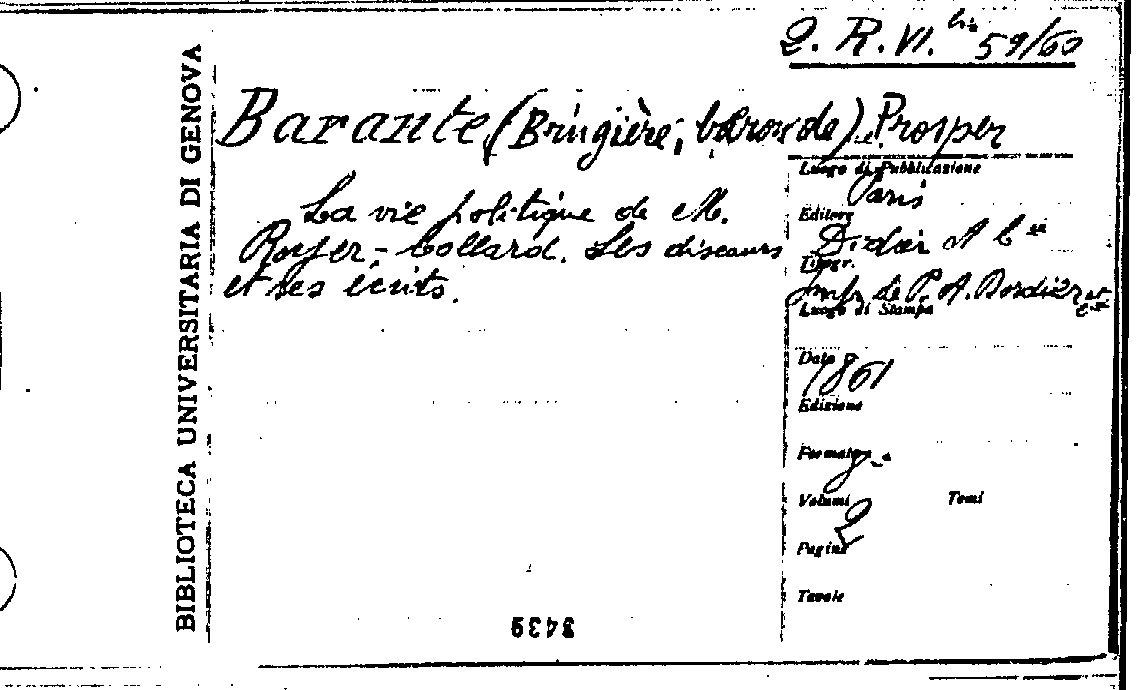 2. R. VI. bis 59/60
BIBLIOTECA UNIVERSITARIA DI GENOVA
Barante (Brugière, baron de) Prosper
La vie politique de M.
Royer-Collard. Ses discours
et ses écrits.
Luogo di Pubblicazione
Paris
Editore
Didier et Cie
Tipogr.
Impr. de P. A. Bourdier et Cie
Luogo di Stampa
Data
1861
Edizione
Formato
8°
Volumi Tomi
2
Pagine
Tavole
3439